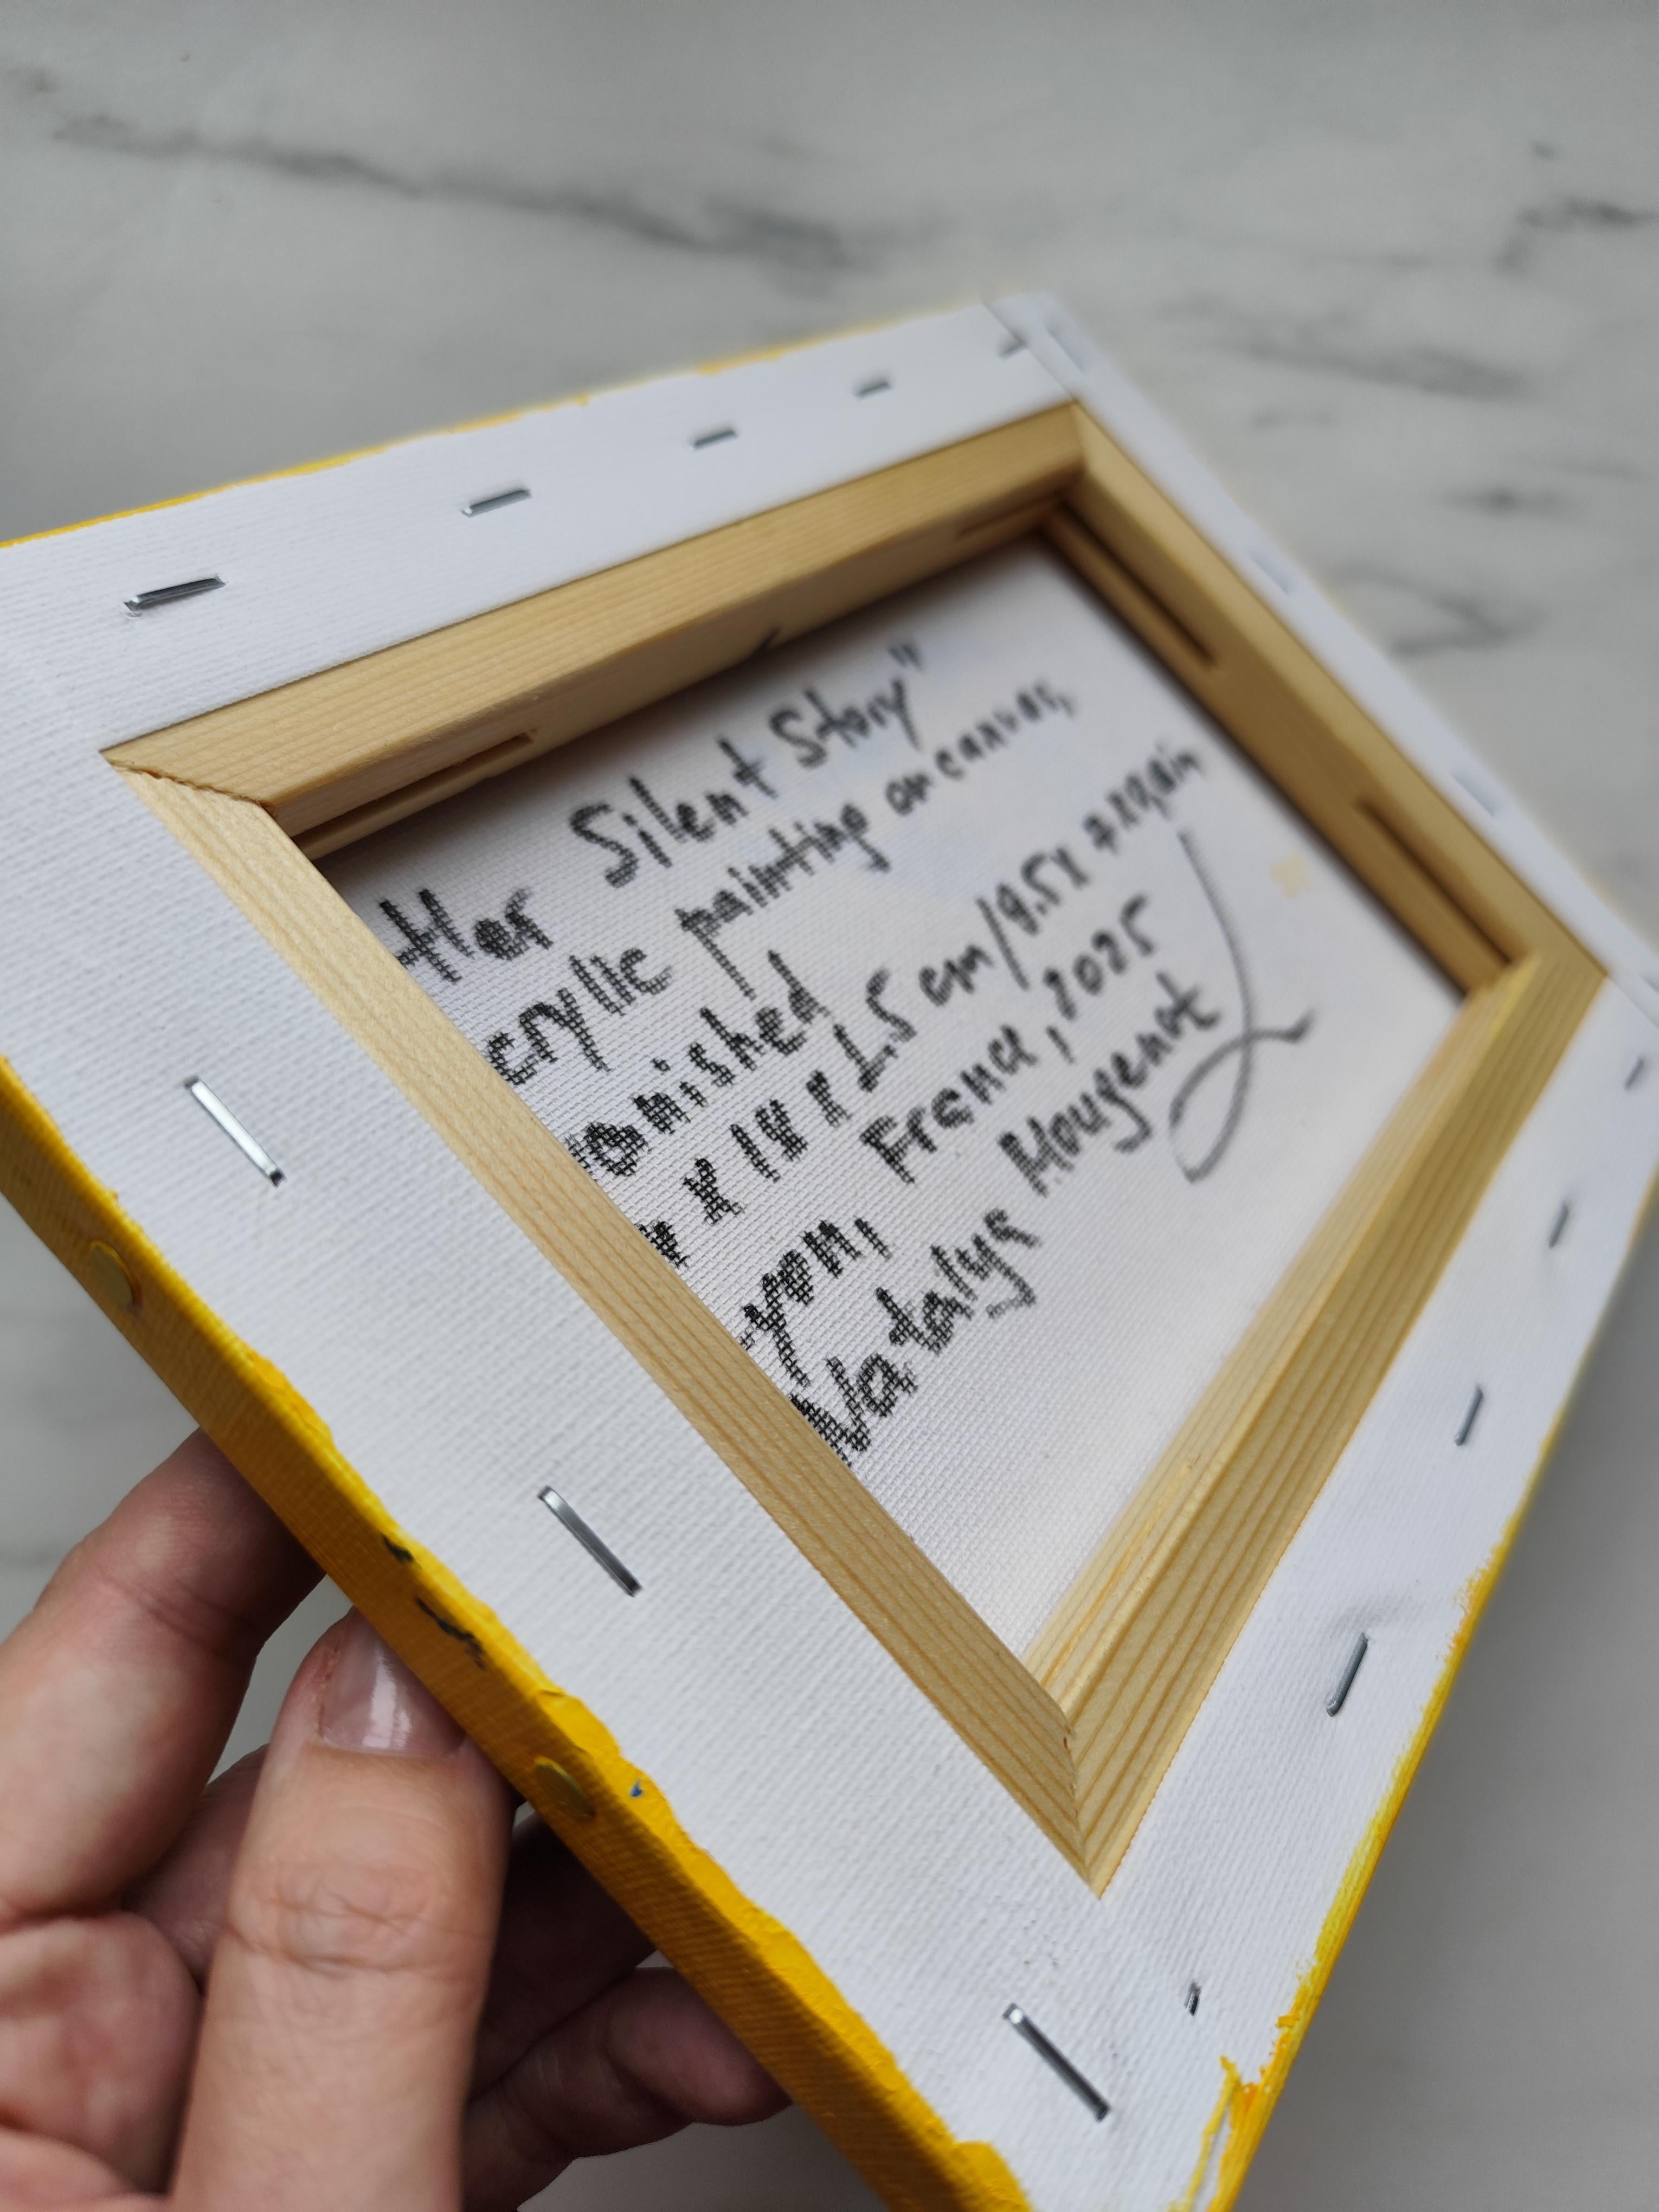 Her Silent Story"
crylic painting on canvas,
anished
x 18 x 1.5 cm/9.5 x 7 x 0,6in
yon, France, 2025
Natalya Mougenot